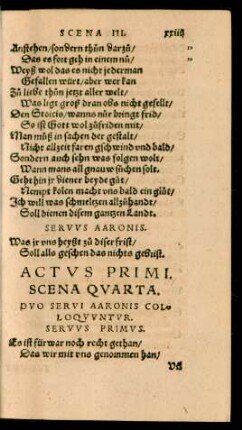 SCENA III. xxiiij
Anstehen/sondern thůn darzů/
Das es fort geh in einem nů/
Weyß wol das es nicht jederman
Gefallen würt/aber wer kan
Zů liebe thůn jetze aller welt/
Was ligt groß dran obs nicht gefellt/
Den Stoicis/wanns nůr bringt frid/
So ist Gott wol zůfriden mit/
Man můß in sachen der gestalt/
Nicht allzeit faren gschwind vnd bald/
Sondern auch sehn was folgen wolt/
Wann mans all gnaw sůchen solt.
Geht hin jr diener beyde gůt/
Nempt kolen macht vns bald ein glůt/
Ich will was schmeltzen allzůhandt/
Soll dienen disem gantzen Landt.
SERVVS AARONIS.
Was jr vns heyßt zů diser frist/
Soll alls geschen das nichts gebrist.
ACTVS PRIMI.
SCENA QVARTA.
DVO SERVI AARONIS COL-
LOQVVNTVR.
SERVVS PRIMVS.
Es ist fürwar noch recht gethan/
Das wir mit vns genommen han/